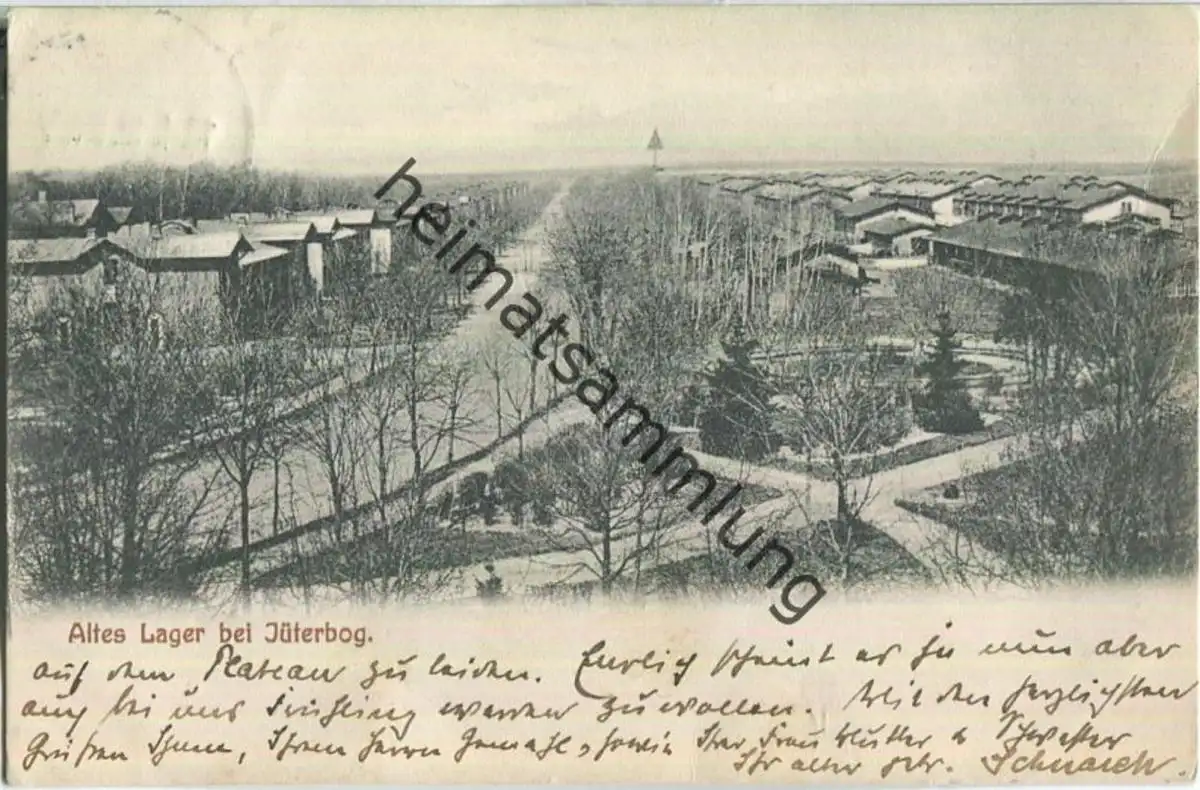 heimatsammlung
Altes Lager bei Jüterbog.
auf dem Plateau zu leiden. Endlich scheint es ja nun aber
auch bei uns Frühling werden zu wollen. Mit den herzlichsten
Grüßen Ihnen, Ihrem Herrn Gemahl, sowie Ihrer Frau Mutter u Schwester
Ihr alter